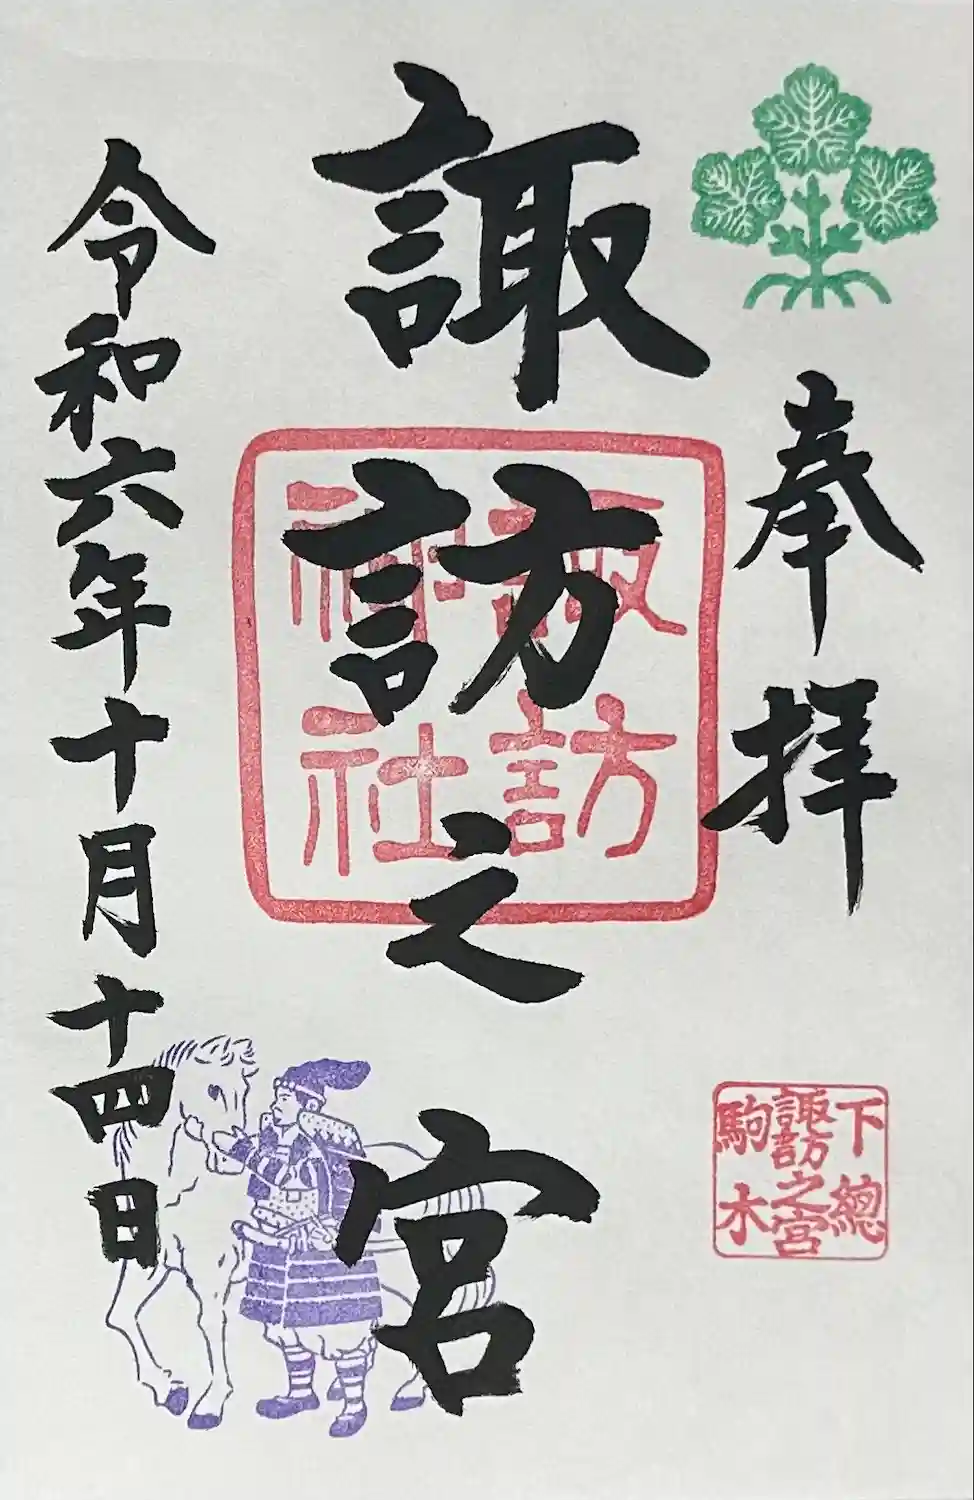 奉拝
諏訪之宮
諏訪
神社
下總
諏訪之宮
駒木
令和六年十月十四日